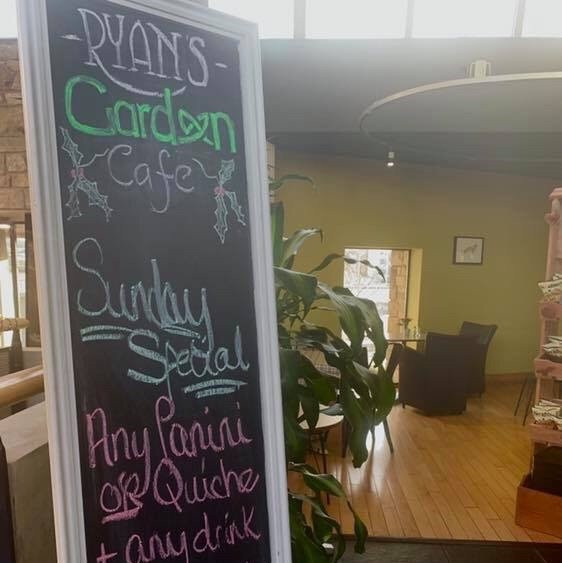 -RYAN'S-
Garden
Cafe
Sunday
Special
Any Panini
or Quiche
+ any drink